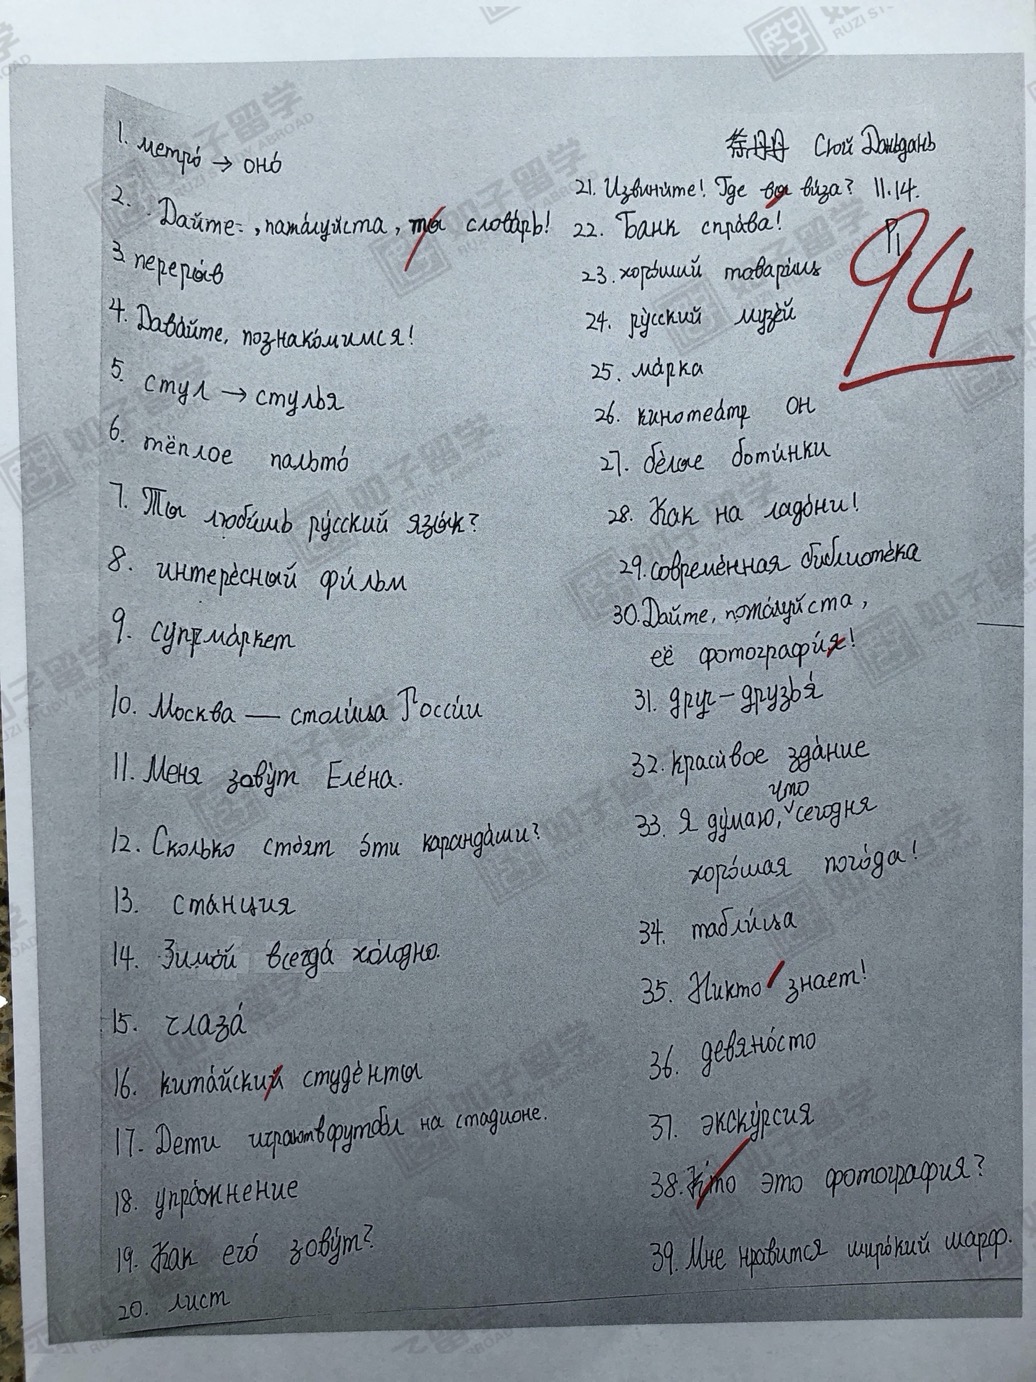 1. метро́ → оно́
2. Дайте, пажалуйста, ты слова́рь!
3. переры́в
4. Дава́йте, познако́мимся!
5. стул → сту́лья
6. тёплое пальто́
7. Ты лю́бишь ру́сский язы́к?
8. интере́сный фи́льм
9. супрма́ркет
10. Москва — столи́ца Росси́и
11. Меня зову́т Еле́на.
12. Сколько сто́ят э́ти каранда́ши?
13. ста́нция
14. Зимо́й всегда́ хо́лодно.
15. глаза́
16. кита́йский студе́нты
17. Дети играют в футбо́л на стадионе.
18. упра́жнение
19. Как его́ зову́т?
20. лист
徐丹丹 Сюй Даньдань
21. Извини́те! Где вы ви́за? 11.14.
22. Банк спра́ва! P1
94
23. хоро́ший таварищ
24. ру́сский музе́й
25. ма́рка
26. кинотеа́тр он
27. бе́лые боти́нки
28. Как на ладо́ни!
29. совреме́нная библиоте́ка
30. Дайте, пожа́луйста,
её фотографи́я!
31. друг – друзья́
32. краси́вое зда́ние
что
33. Я ду́маю, сегодня
хоро́шая пого́да!
34. табли́ца
35. Никто знает!
36. девяно́сто
37. экску́рсия
38. Кто это фотография?
39. Мне нра́вится широ́кий шарф.
如子留学
RUZI STUDY ABROAD